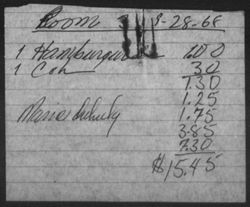 Room 9-28-68
1 Hamburger 1.00
1 Cok 30
1.30
1.25
1.75
Maria 3.85
7.30
$15.45